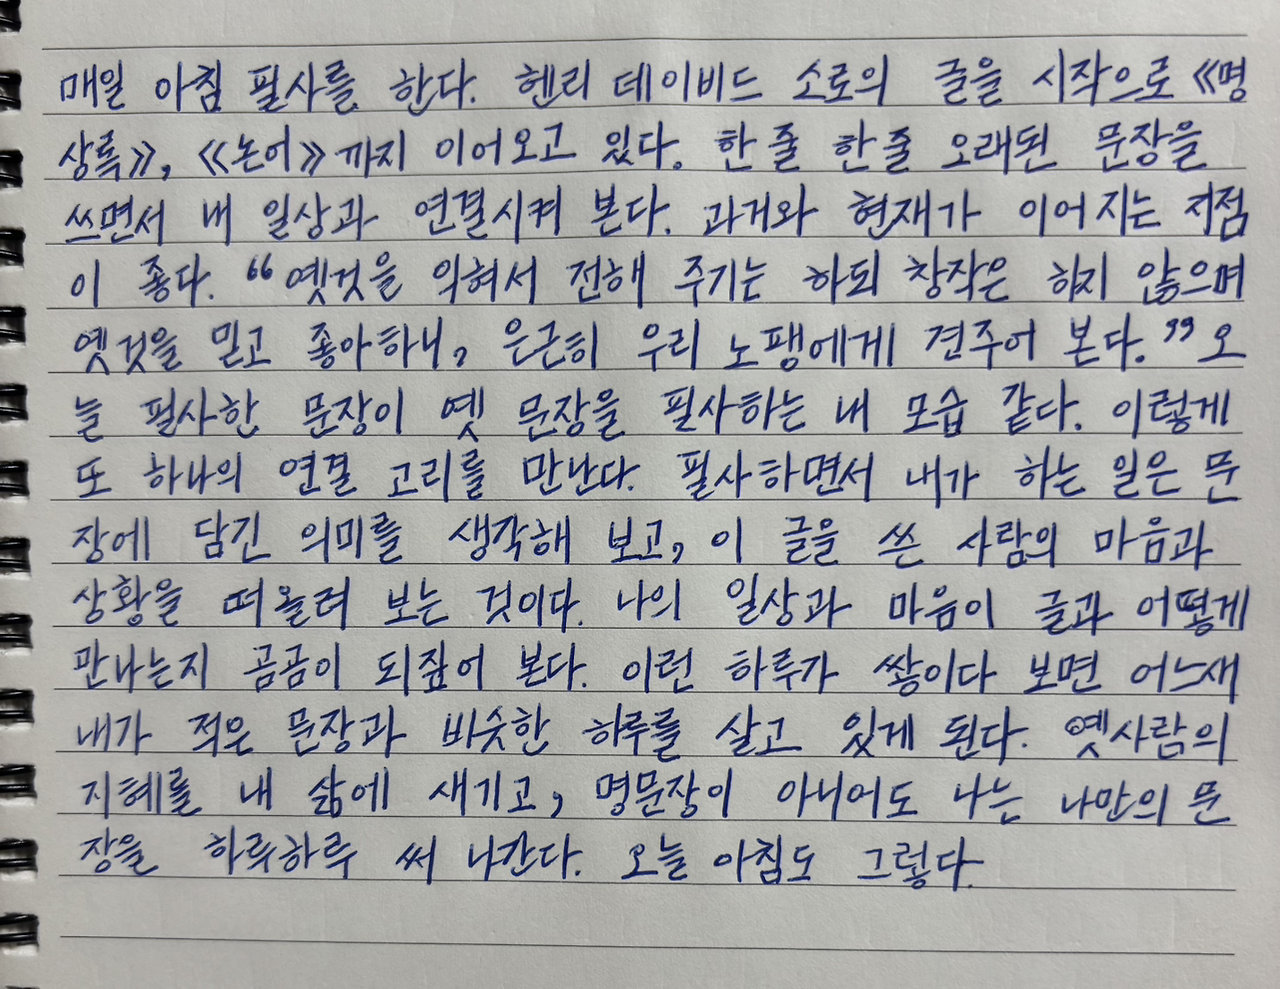 매일 아침 필사를 한다. 헨리 데이비드 소로의 글을 시작으로 《명
상록》, 《논어》까지 이어오고 있다. 한 줄 한 줄 오래된 문장을
쓰면서 내 일상과 연결시켜 본다. 과거와 현재가 이어지는 지점
이 좋다. “옛것을 익혀서 전해 주기는 하되 창작은 하지 않으며
옛것을 믿고 좋아하니, 은근히 우리 노팽에게 견주어 본다.” 오
늘 필사한 문장이 옛 문장을 필사하는 내 모습 같다. 이렇게
또 하나의 연결 고리를 만난다. 필사하면서 내가 하는 일은 문
장에 담긴 의미를 생각해 보고, 이 글을 쓴 사람의 마음과
상황을 떠올려 보는 것이다. 나의 일상과 마음이 글과 어떻게
만나는지 곰곰이 되짚어 본다. 이런 하루가 쌓이다 보면 어느새
내가 적은 문장과 비슷한 하루를 살고 있게 된다. 옛사람의
지혜를 내 삶에 새기고, 명문장이 아니어도 나는 나만의 문
장을 하루하루 써 나간다. 오늘 아침도 그렇다.